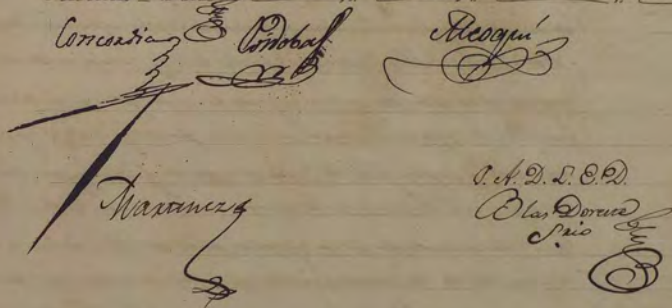 Concordia Cordoba Alcoquí
Martinez
P. A. D. L. E. D.
Blas Dorese
Srio